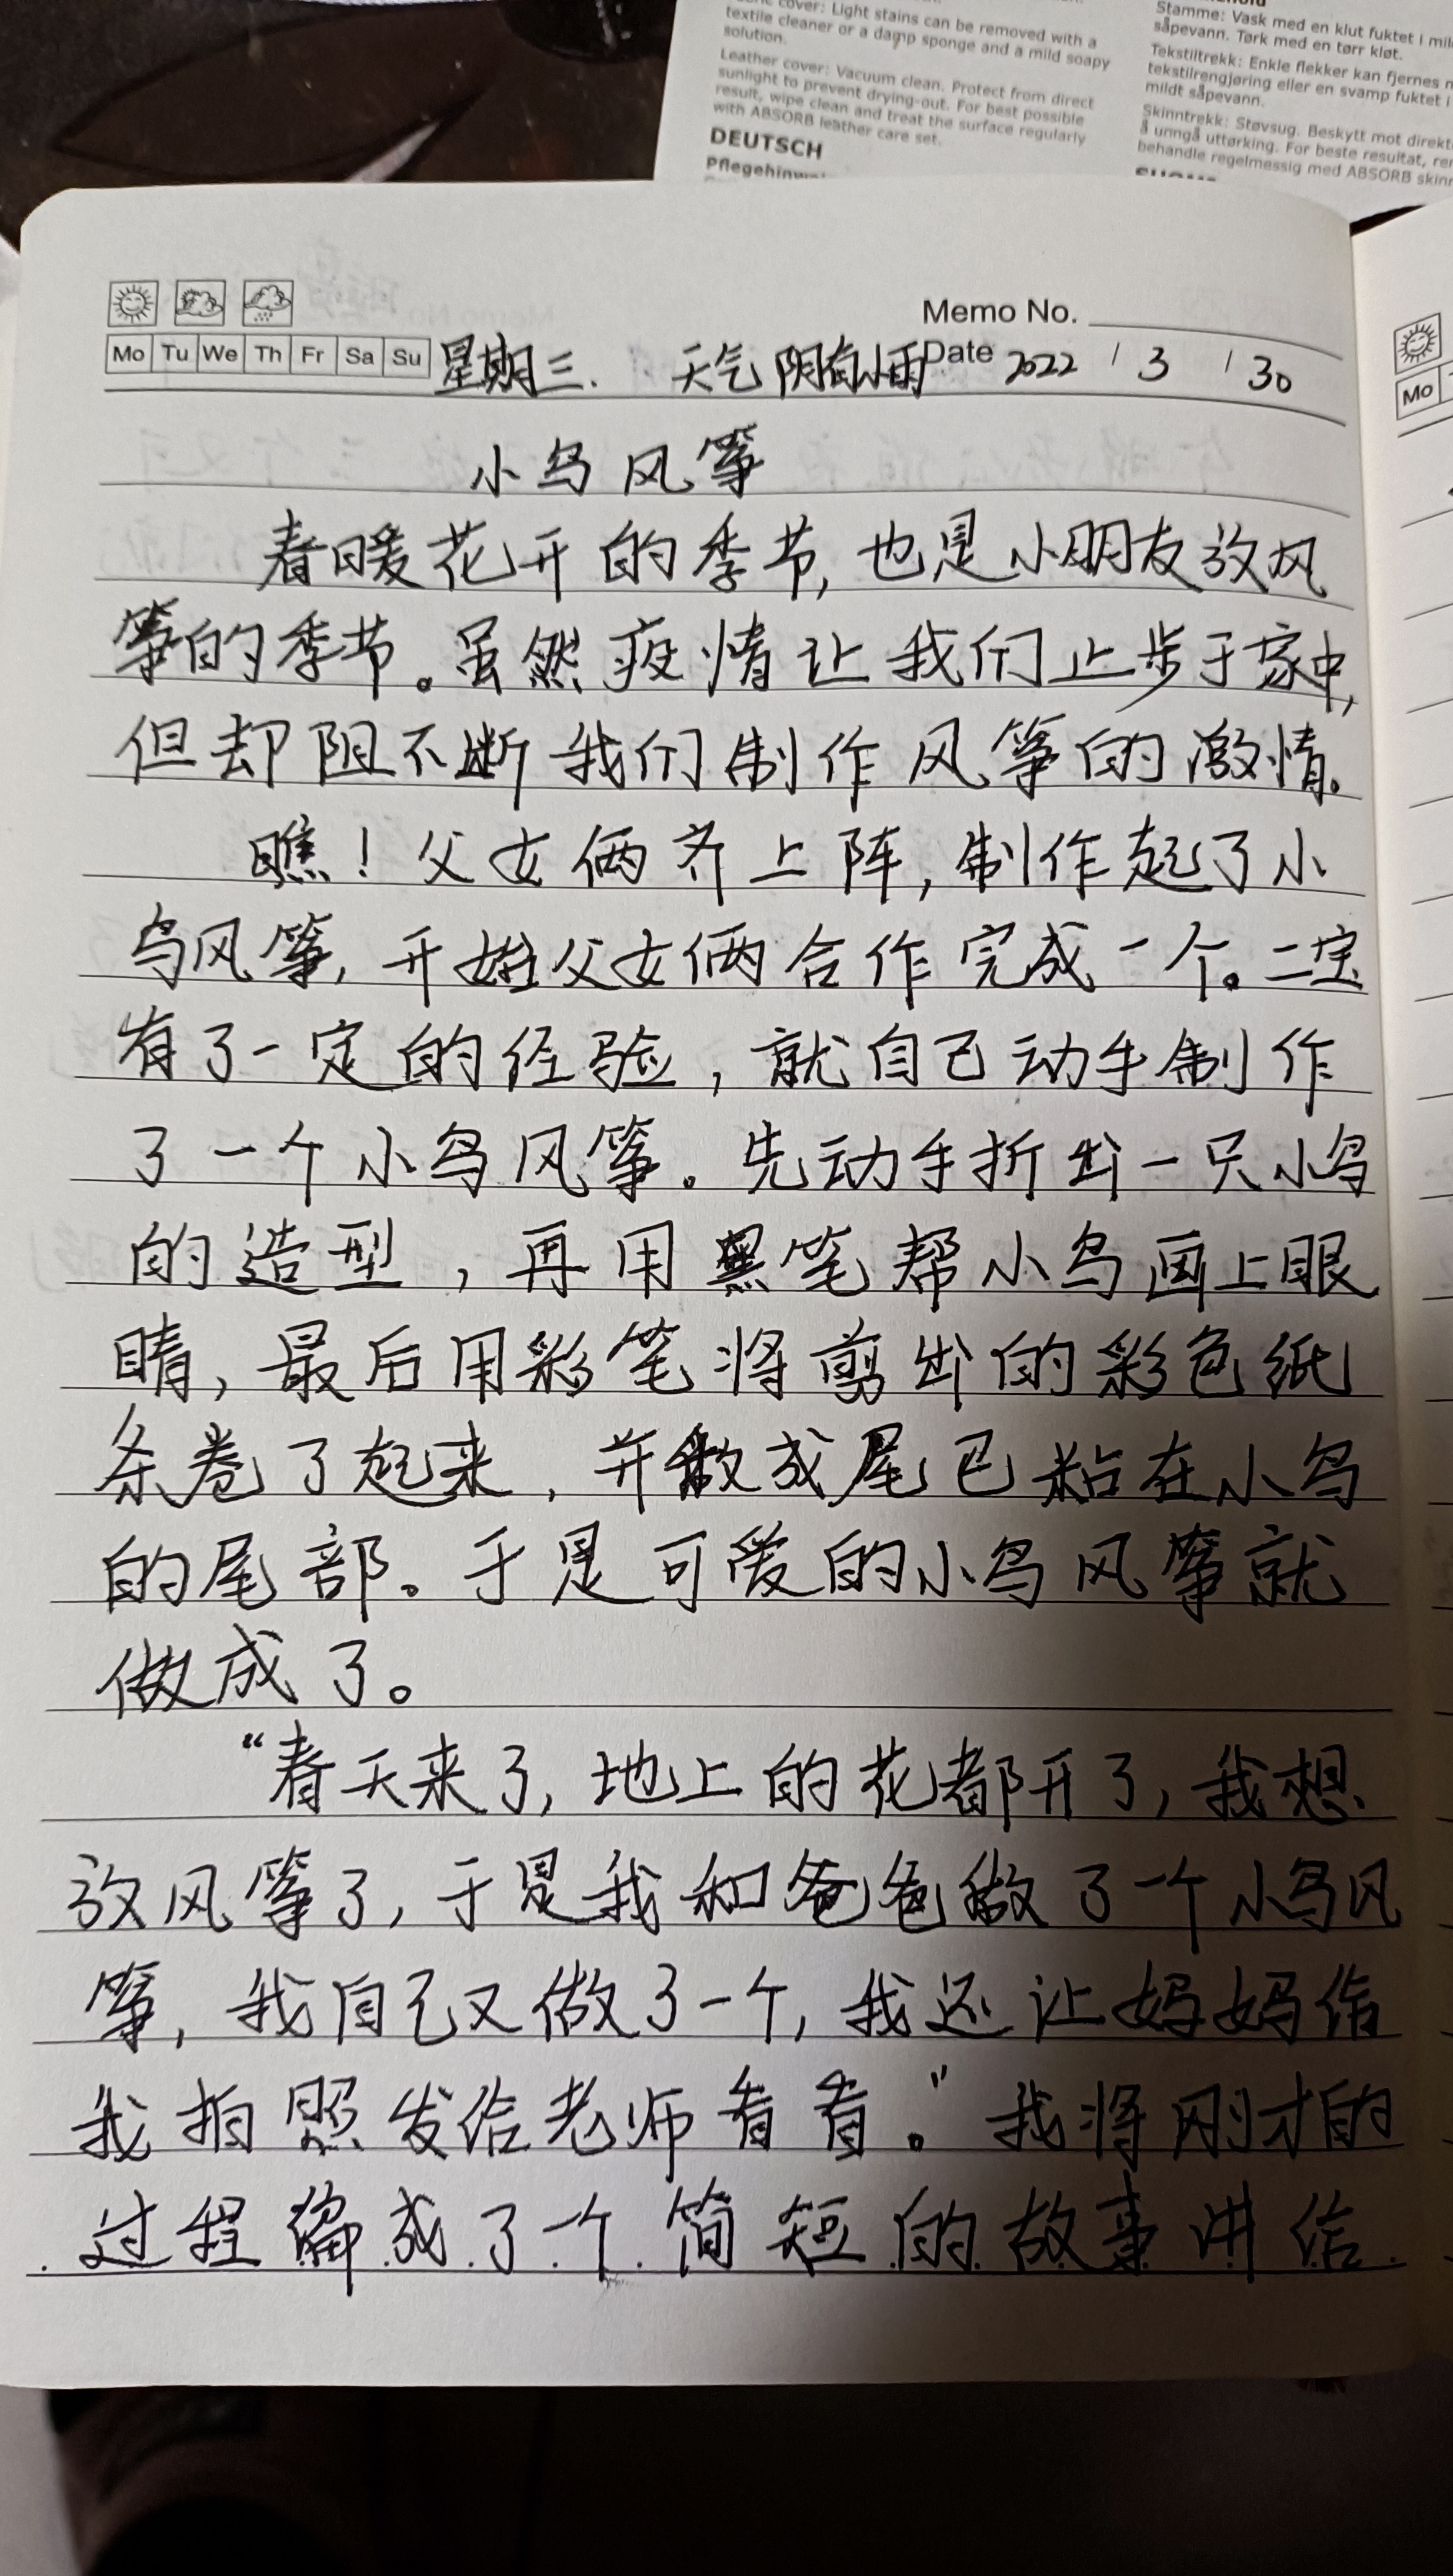 cover: Light stains can be removed with a
textile cleaner or a damp sponge and a mild soapy
solution.
Leather cover: Vacuum clean. Protect from direct
sunlight to prevent drying-out. For best possible
result, wipe clean and treat the surface regularly
with ABSORB leather care set.
DEUTSCH
Stamme: Vask med en klut fuktet i
såpevann. Tørk med en tørr klut.
Tekstiltrekk: Enkle flekker kan fjernes
tekstilrengjøring eller en svamp fuktet i
mildt såpevann.
Skinntrekk: Støvsug. Beskytt mot
å unngå uttørking. For beste resultat,
behandle regelmessig med ABSORB
Memo No.
Mo Tu We Th Fr Sa Su 星期三. 天气 阴有小雨 Date 2022 / 3 / 30
小鸟风筝
春暖花开的季节,也是小朋友放风
筝的季节。虽然疫情让我们止步于家中,
但却阻不断我们制作风筝的激情。
瞧!父女俩齐上阵,制作起了小
鸟风筝,开始父女俩合作完成一个。二宝
有了一定的经验,就自己动手制作
了一个小鸟风筝。先动手折出一只小鸟
的造型,再用黑笔帮小鸟画上眼
睛,最后用彩笔将剪出的彩色纸
条卷了起来,并做成尾巴粘在小鸟
的尾部。于是可爱的小鸟风筝就
做成了。
“春天来了,地上的花都开了,我想
放风筝了,于是我和爸爸做了一个小鸟风
筝,我自己又做了一个,我还让妈妈给
我拍照发给老师看看。”我将刚才的
过程编成了一个简短的故事讲给
Mo